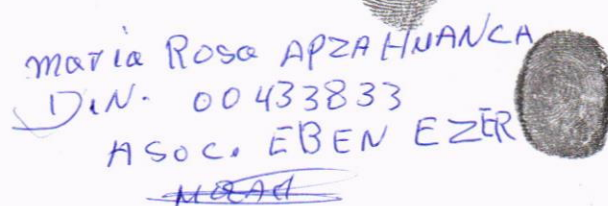 maria Rosa APZA HUANCA
D.N. 00433833
ASOC. EBEN EZER